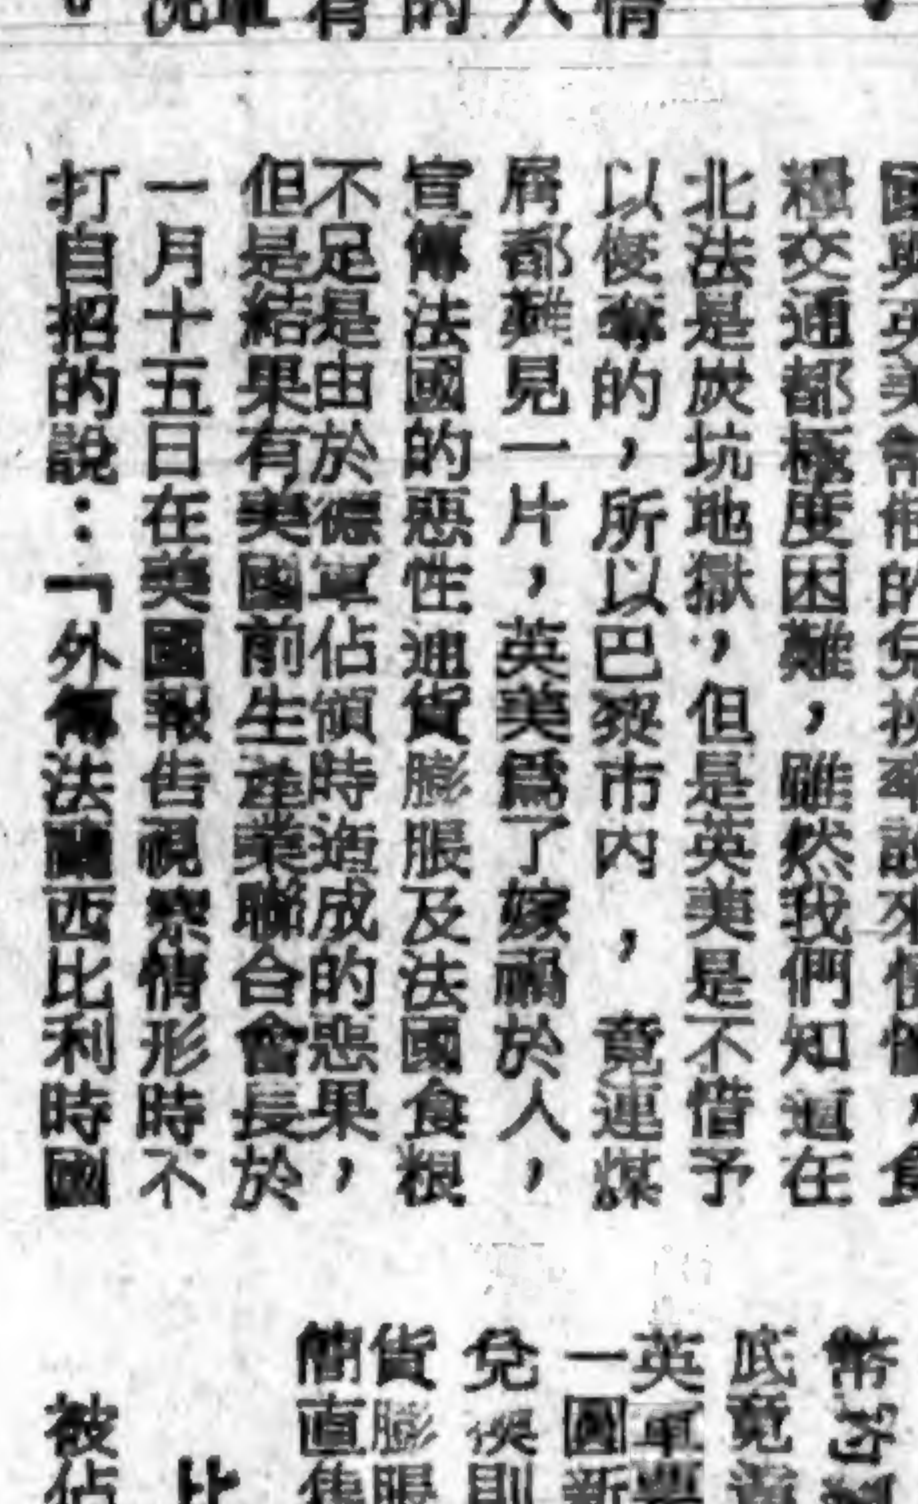 情人的有
國與英美
糧交通都極度困難，雖然我們知道在
北法是炭坑地獄，但是英美是不惜予
以侵奪的，所以巴黎市內，竟連煤
屑都難見一片，英美爲了嫁禍於人，
宣傳法國的惡性通貨膨脹及法國食糧
不足是由於德軍佔領時造成的惡果，
但是結果有美國前生產業聯合會長於
一月十五日在美國報告視察情形時不
打自招的說：「外傳法蘭西比利時國
幣的
底竟
英軍
一圓新
兌換則
貨膨脹
簡直
比
被佔